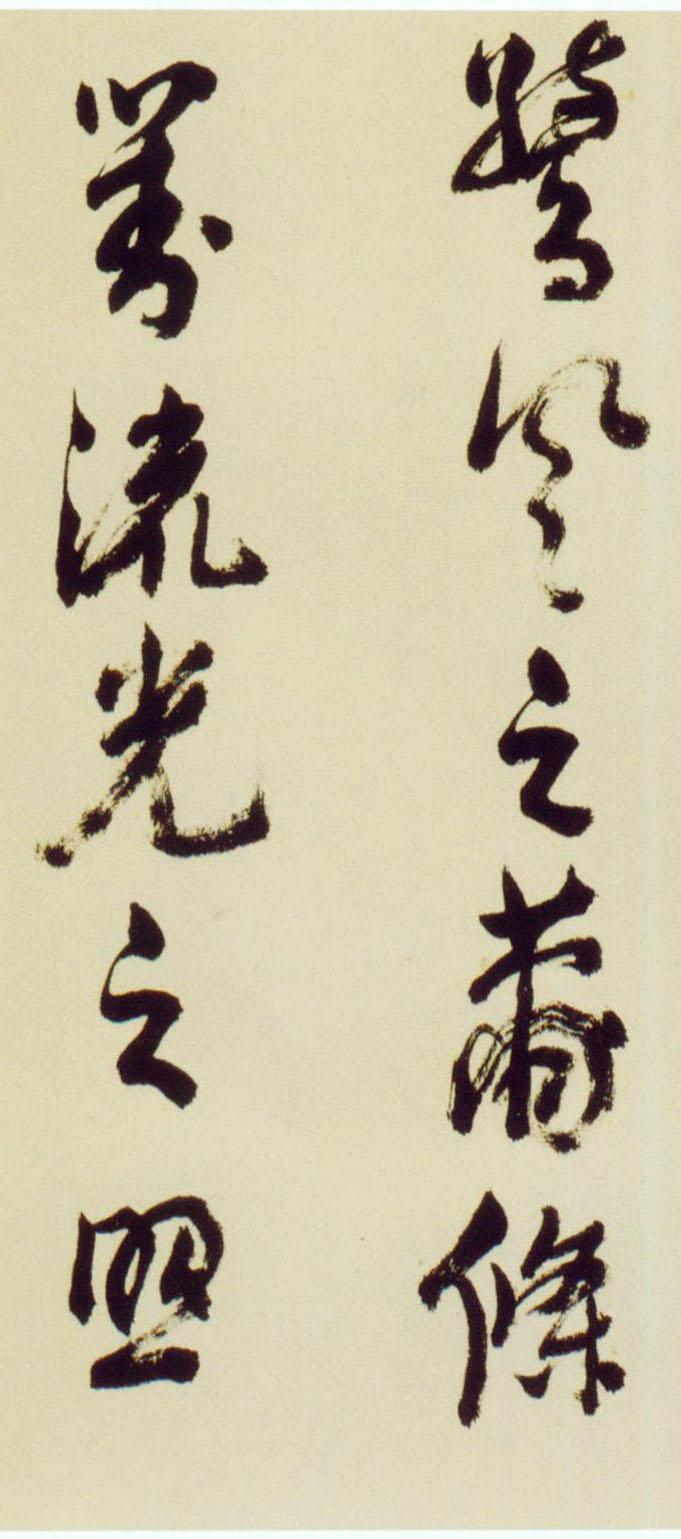 驚風之蕭條
對流光之照